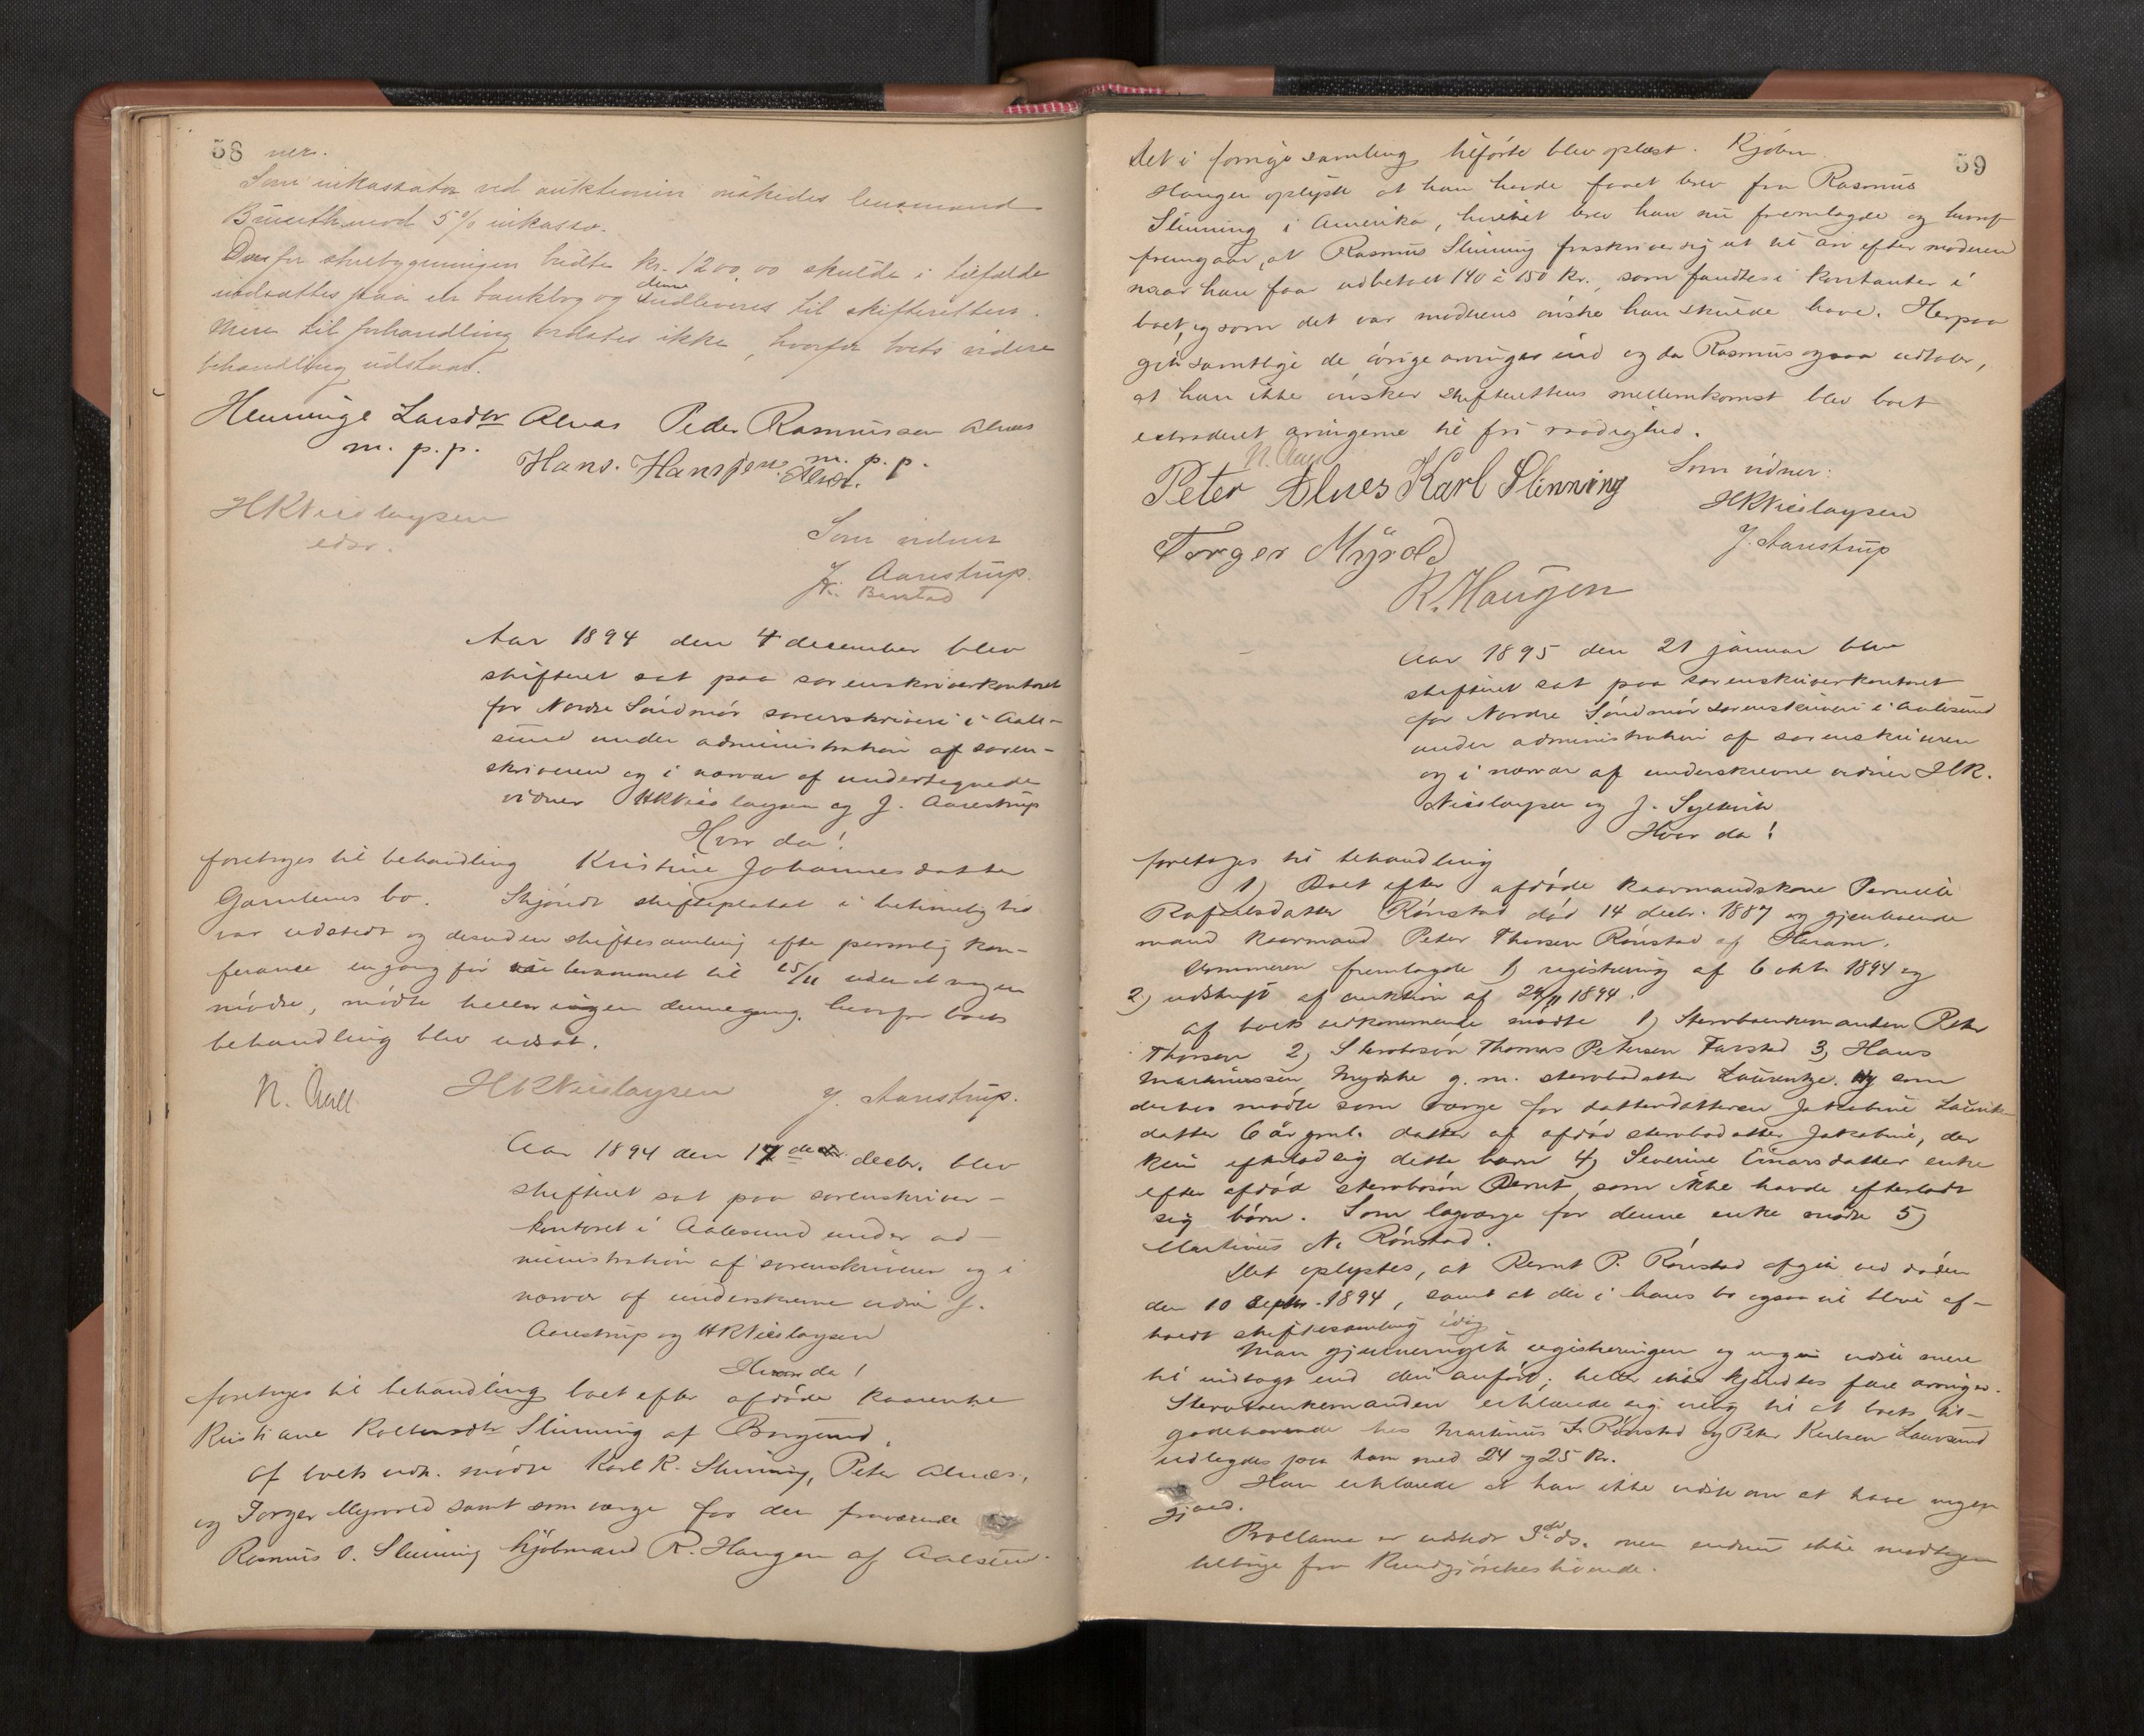 58 ner.
Som inkassator ved auktionen önskedes lensmand
Buseth mod 5 % inkasso.
De for stuebygningen budte kr. 1200,00 skulde i tilfælde
indsættes paa en bankbog og denne indleveres til skifteretten.
Mere til forhandling vidstes ikke, hvorfor boets videre
behandling udstaar.
Henninge Larsdtr Alnæs Peder Rasmussen Alnæs
m. p. p. m. p. p.
Hans. Hans Jens. Alnæs.
HKNicolaysen
edsv.
Som vidner
J. Aarestrup.
Aar 1894 den 4 december blev
skifteret sat paa sorenskriverkontoret
for Nordre Söndmör sorenskriveri i Aale-
sund under administration af soren-
skriveren og i nærvær af undertegnede
vidner HKNicolaysen og J. Aarestrup
Hvor da!
foretoges til behandling Kristine Johannesdatter
Gamlems bo. Skjöndt skifteplakat i betimelig tid
var udstedt og desuden skiftesamling efter personlig kon-
ferance engang för var berammet til 15/11 uden at nogen
mödte, mödte heller ingen dennegang, hvorfor boets
behandling blev udsat.
N. Aall. HKNicolaysen J. Aarestrup.
Aar 1894 den 17 decbr. blev
skifteret sat paa sorenskriver-
kontoret i Aalesund under ad-
ministration af sorenskriveren og i
nærvær af underskrevne vidner J.
Aarestrup og HKNicolaysen
Hvor da!
foretoges til behandling boet efter afdöde kaarenke
Kristiane Slinning af Borgund.
Af boets vedk. mödte Karl K. Slinning, Peter Alnæs,
og Torger Myrvold samt som værge for den fraværende
Rasmus O. Slinning kjöbmand R. Haugen af Aalesund.
59
Det i forrige samling tilförte blev oplæst. Kjöbm.
Haugen oplyste at han havde faaet brev fra Rasmus
Slinning i Amerika, hvilket brev han nu fremlagde og hvoraf
fremgaar, at Rasmus Slinning fraskriver sig alt arv efter moderen
naar han faar udbetalt 140 à 150 kr., som fandtes i kontanter i
boet, og som det var moderens önske han skulde have. Herpaa
gik samtlige de övrige arvinger ind og da Rasmus ogsaa udtaler,
at han ikke önsker skifterettens mellemkomst blev boet
extraderet arvingerne til fri raadighed.
N. Aall
Peter Alnes Karl Slinning Som vidner:
HKNicolaysen
Torger Myrold J. Aarestrup
R. Haugen
Aar 1895 den 21 januar blev
skifteret sat paa sorenskriverkontoret
for Nordre Söndmör sorenskriveri i Aalesund
under administration af sorenskriveren
og i nærvær af underskrevne vidner HK.
Nicolaysen og J. Syltevik
Hvor da!
foretoges til behandling
1) Boet efter afdöde kaarmandskone Pernille
Rafaelsdatter Rönstad död 14 decbr. 1887 og gjenlevende
mand kaarmand Peter Thorsen Rönstad af Haram.
Dommeren fremlagde 1) registrering af 6 okt. 1894 og
2) udskrift af auktion af 24/11 1894.
Af boets vedkommende mödte 1) Stervboenkemanden Peter
Thorsen 2) Stervbosön Thomas Petersen Farstad 3) Hans
Martinussen Myske g. m. stervbodatter Laurentze. og som
derhos mödte som værge for datterdatteren Jakobine Laurits-
datter 6 år gml. datter af afdöd stervbodatter Jakobine, der
kun efterlod sig dette barn 4) Severine Einarsdatter enke
efter afdöd stervbosön Bernt, som ikke havde efterladt
sig börn. Som lagværge for denne enke mödte 5)
Martinus N. Rönstad.
Det oplystes, at Bernt P. Rönstad afgik ved döden
den 10 septbr. 1894, samt at der i hans bo ogsaa vil blive af-
holdt skiftesamling idag
Man gjennemgik registreringen og ingen vidste mere
til indtægt end den anfört; heller ikke kjendtes flere arvinger.
Stervboenkemanden erklærede sig villig til at boets til-
godehavende hos Martinus I. Rönstad og Peter Laursund
udlægdes paa ham med 24 og 25 kr.
Han erklærede at han ikke vidste om at have nogen
gjæld.
Proclama er udstedt 3die ds. men endnu ikke modtagen
tilbage fra Kundgjörelsestidende.